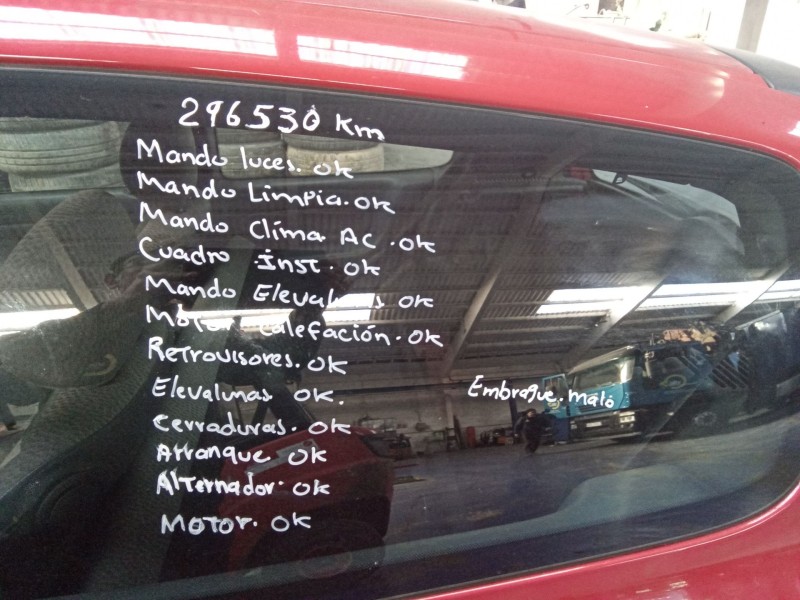 296530 Km
Mando luces. ok
Mando Limpia. ok
Mando Clima AC. ok
Cuadro .inst. ok
Mando Elevalunas ok
Motor calefación. ok
Retrovisores. ok
Elevalunas ok.
Cerraduras. ok
Arranque ok
Alternador. ok
Motor. ok
Embrague. malo